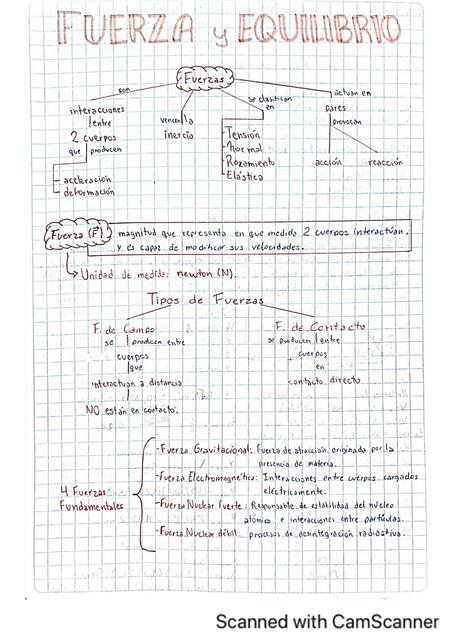 FUERZA y EQUILIBRIO
Fuerzas
son
se clasifican
en
actuan en
interacciones
entre
2 cuerpos
que producen
aceleración
deformación
vencen la
inercia
- Tensión
- Normal
- Rozamiento
- Elástica
pares
provocan
acción
reacción
Fuerza (F)
magnitud que representa en que medida 2 cuerpos interactúan.
y es capaz de modificar sus velocidades.
Unidad de medida: newton (N).
Tipos de Fuerzas
F. de Campo
se producen entre
cuerpos
que
interactuan a distancia
NO están en contacto.
F. de Contacto
se producen entre
cuerpos
en
contacto directo
4 Fuerzas
Fundamentales
- Fuerza Gravitacional: Fuerza de atracción originada por la
presencia de materia.
- Fuerza Electromagnética: Interacciones entre cuerpos cargados
eléctricamente.
- Fuerza Nuclear Fuerte: Responsable de estabilidad del núcleo
atómico e interacciones entre partículas.
- Fuerza Nuclear débil: procesos de desintegración radiactiva.
Scanned with CamScanner